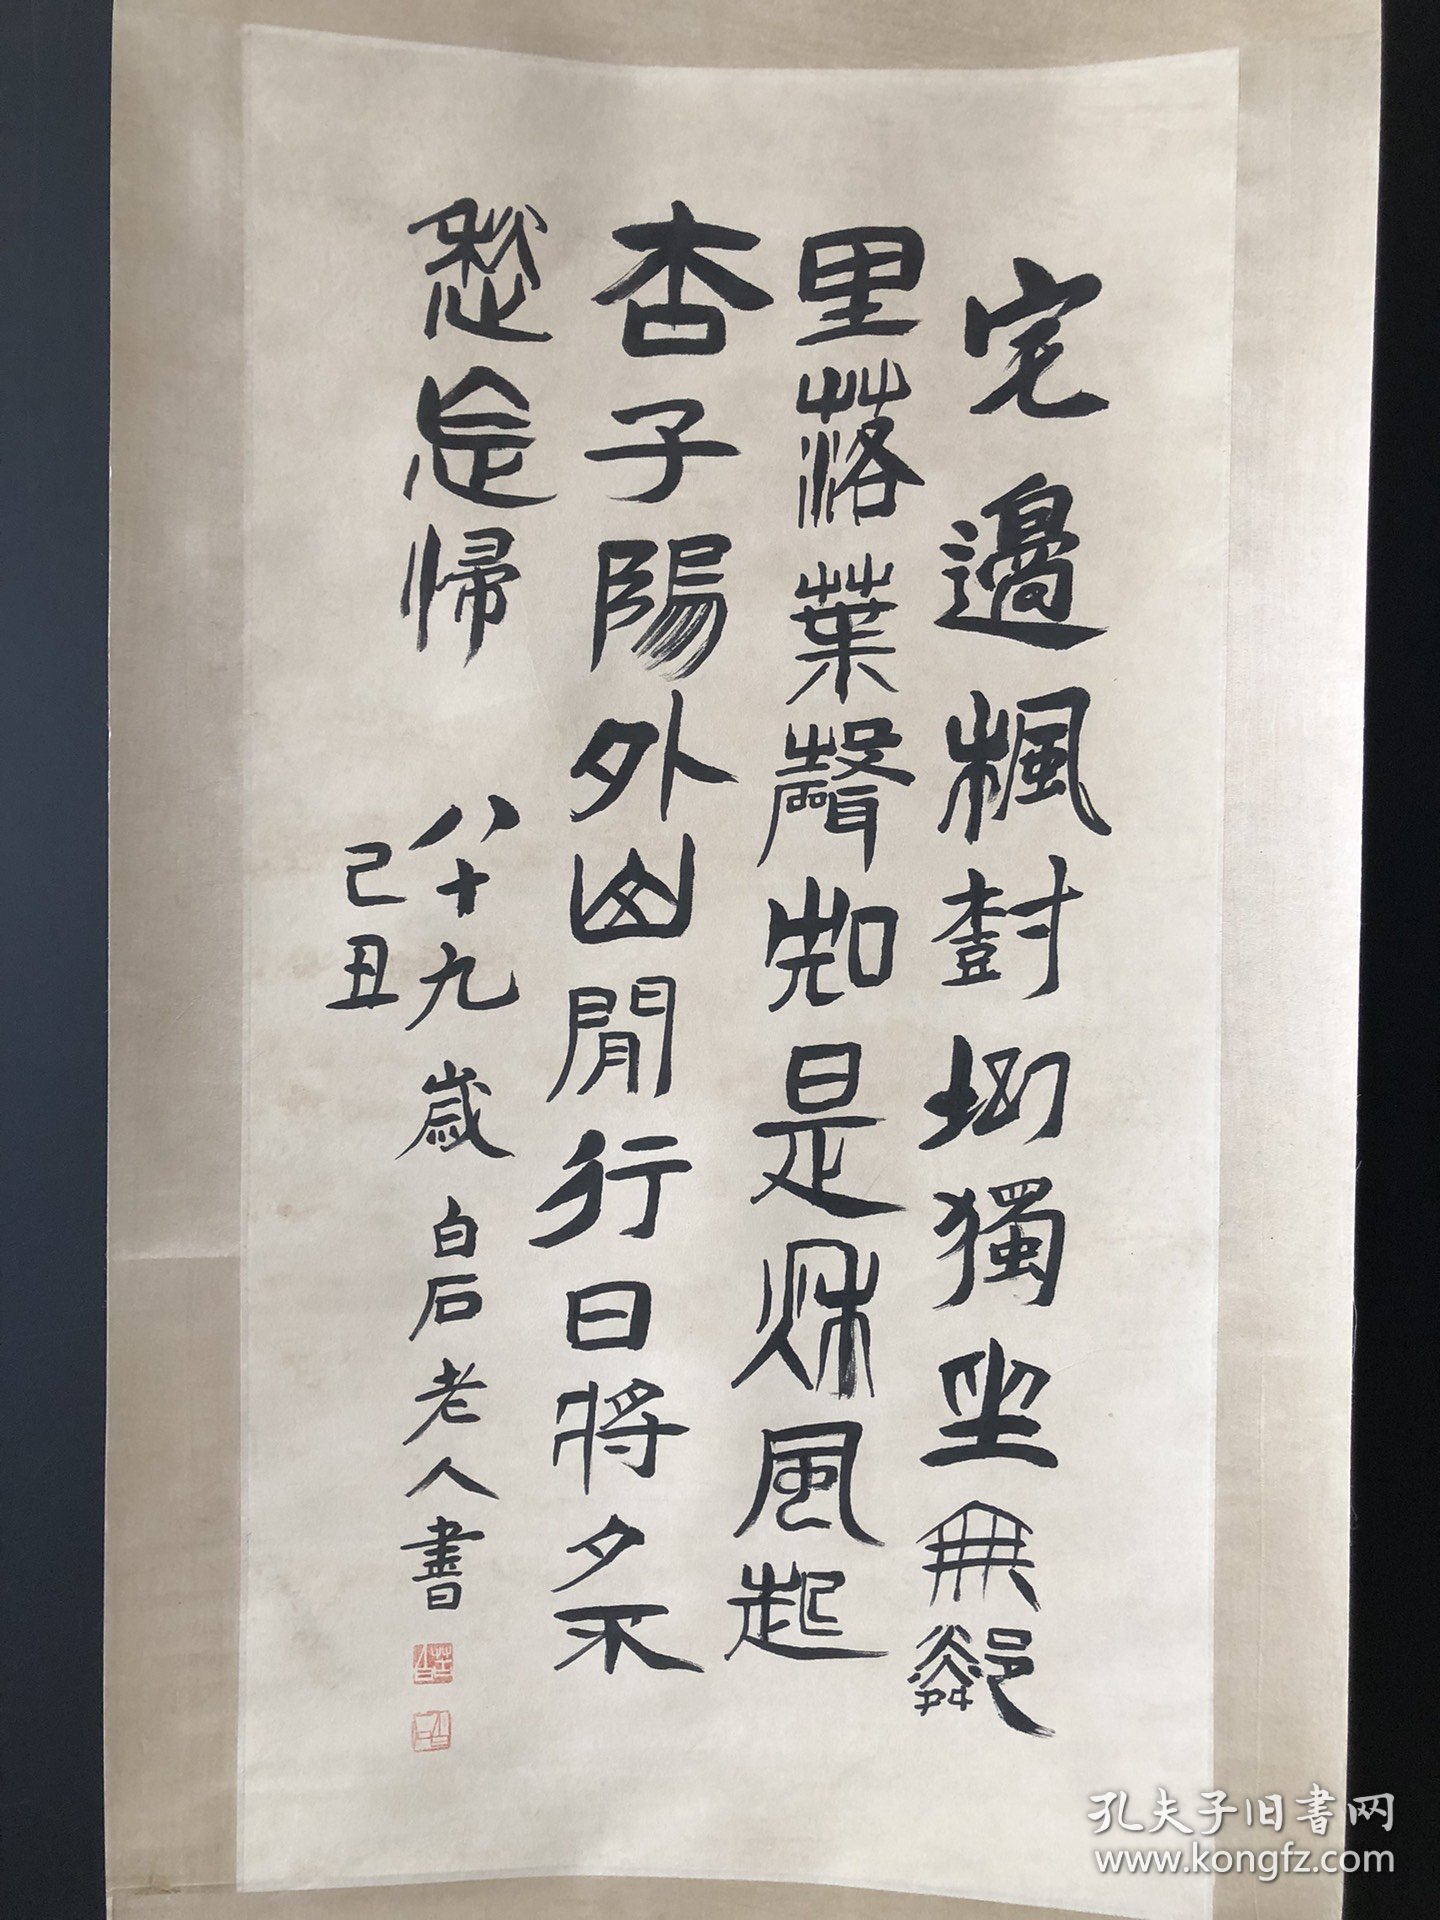 宅邊楓樹坳獨坐無鄰
里落葉聲知是秌風起
杏子隖外山閒行日將夕不
愁忘歸
八十九歲白石老人書
己丑
孔夫子旧书网
www.kongfz.com